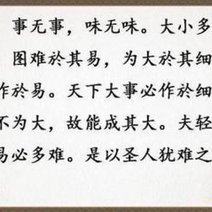 事无事，味无味。大小多
图难於其易，为大於其细
作於易。天下大事必作於细
不为大，故能成其大。夫轻
易必多难。是以圣人犹难之